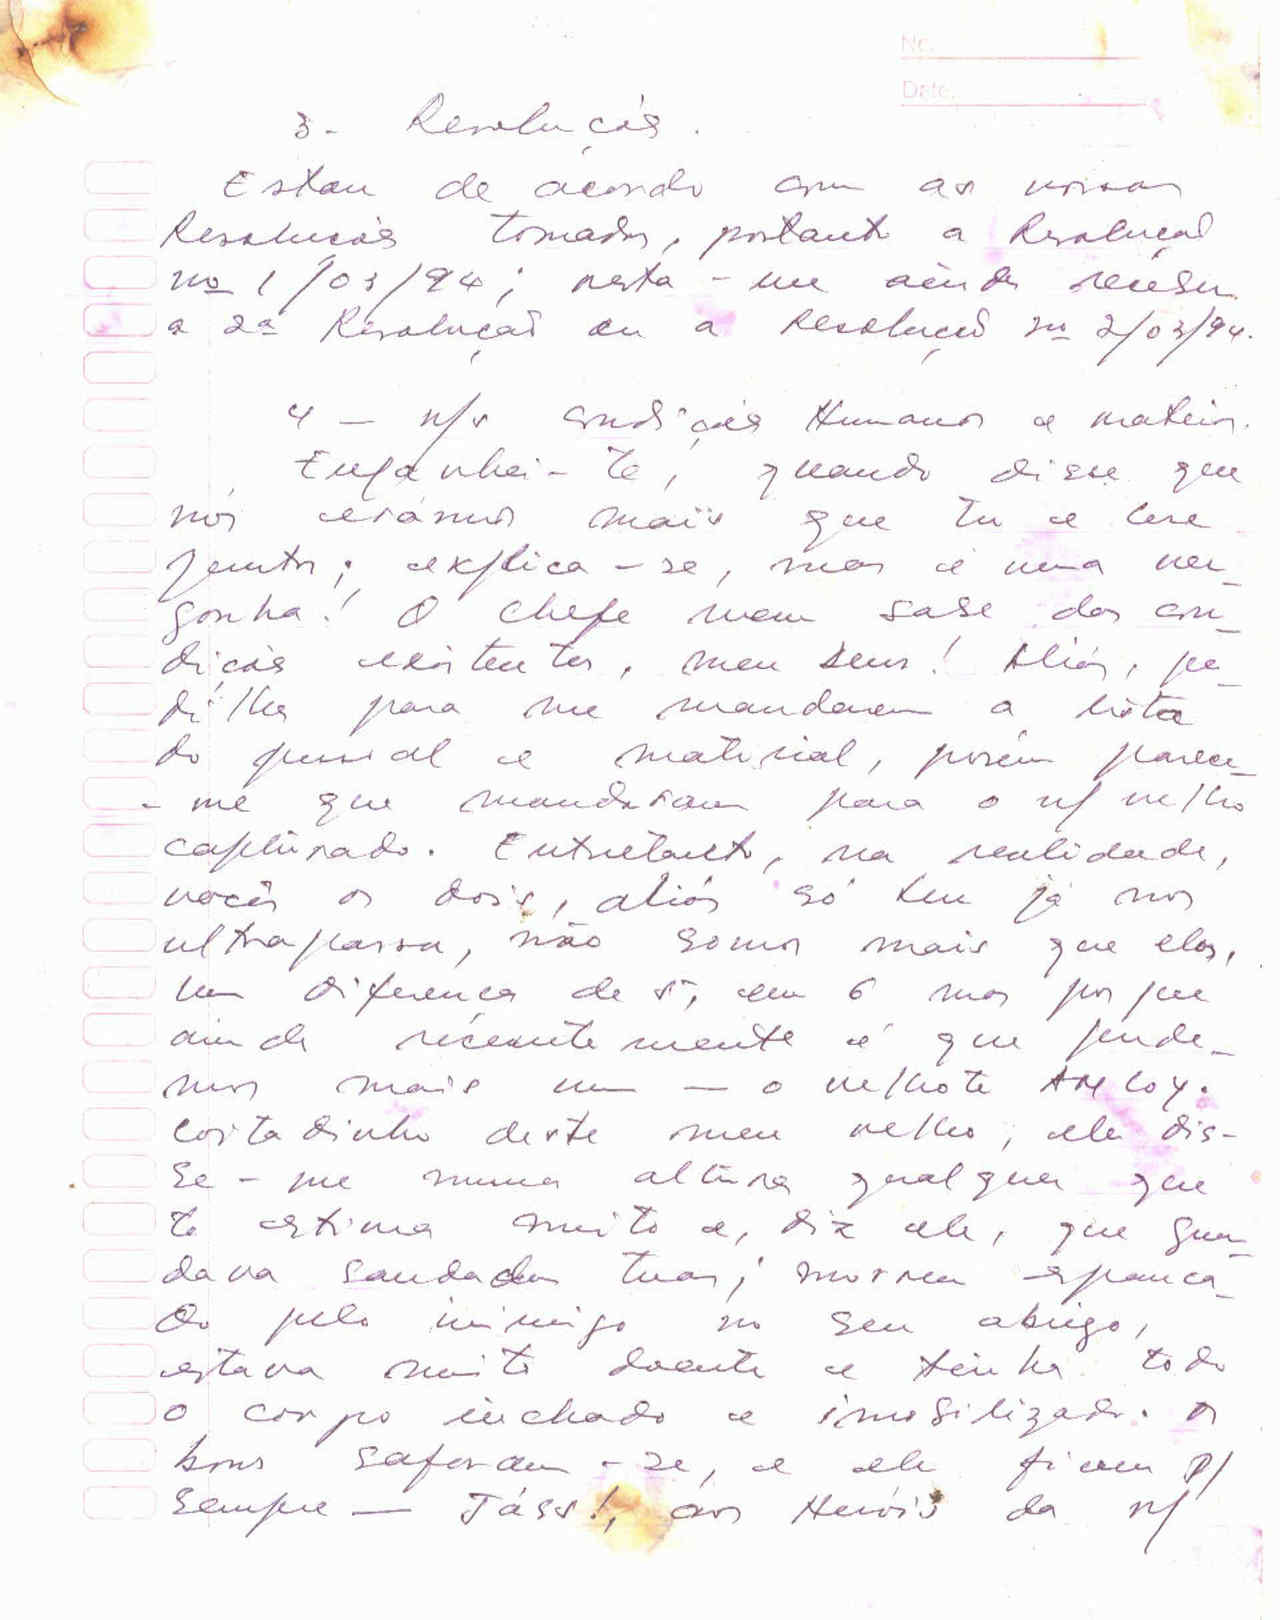 No.
Date.
3- Resoluções.
Estou de acordo com as vossas
Resoluções tomadas, portanto a Resolução
nº 1/03/94; resta-me ainda receber
a 2ª Resolução ou a Resolução nº 2/03/94.
4 - n/s condições Humanas e mateis.
Enganei-te, quando disse que
nós eramos mais que tu e Lere
juntos; explica-se, mas é uma ver-
gonha! O chefe nem sabe das con-
dições existentes, meu Deus! Aliás, pe-
di lhes para me mandarem a lista
do pessoal e material, porém parece-
-me que mandaram para o n/ velho
capturado. Entretanto, na realidade,
vocês os dois, aliás só tu já nos
ultrapassa, não somos mais que elas,
um diferença de 5, ou 6 mas porque
ainda recentemente é que perde-
mos mais um - o velhote
Coitadinho deste meu velho, ele dis-
se-me numa altura qualquer que
te estima muito e, diz ele, que guar-
dava saudades tuas; morreu espanca-
do pelo inimigo no seu abrigo,
estava muito doente e tinha todo
o corpo inchado e imobilizado. Os
bons safaram-se, e ele ficou p/
sempre - aos Heróis da n/